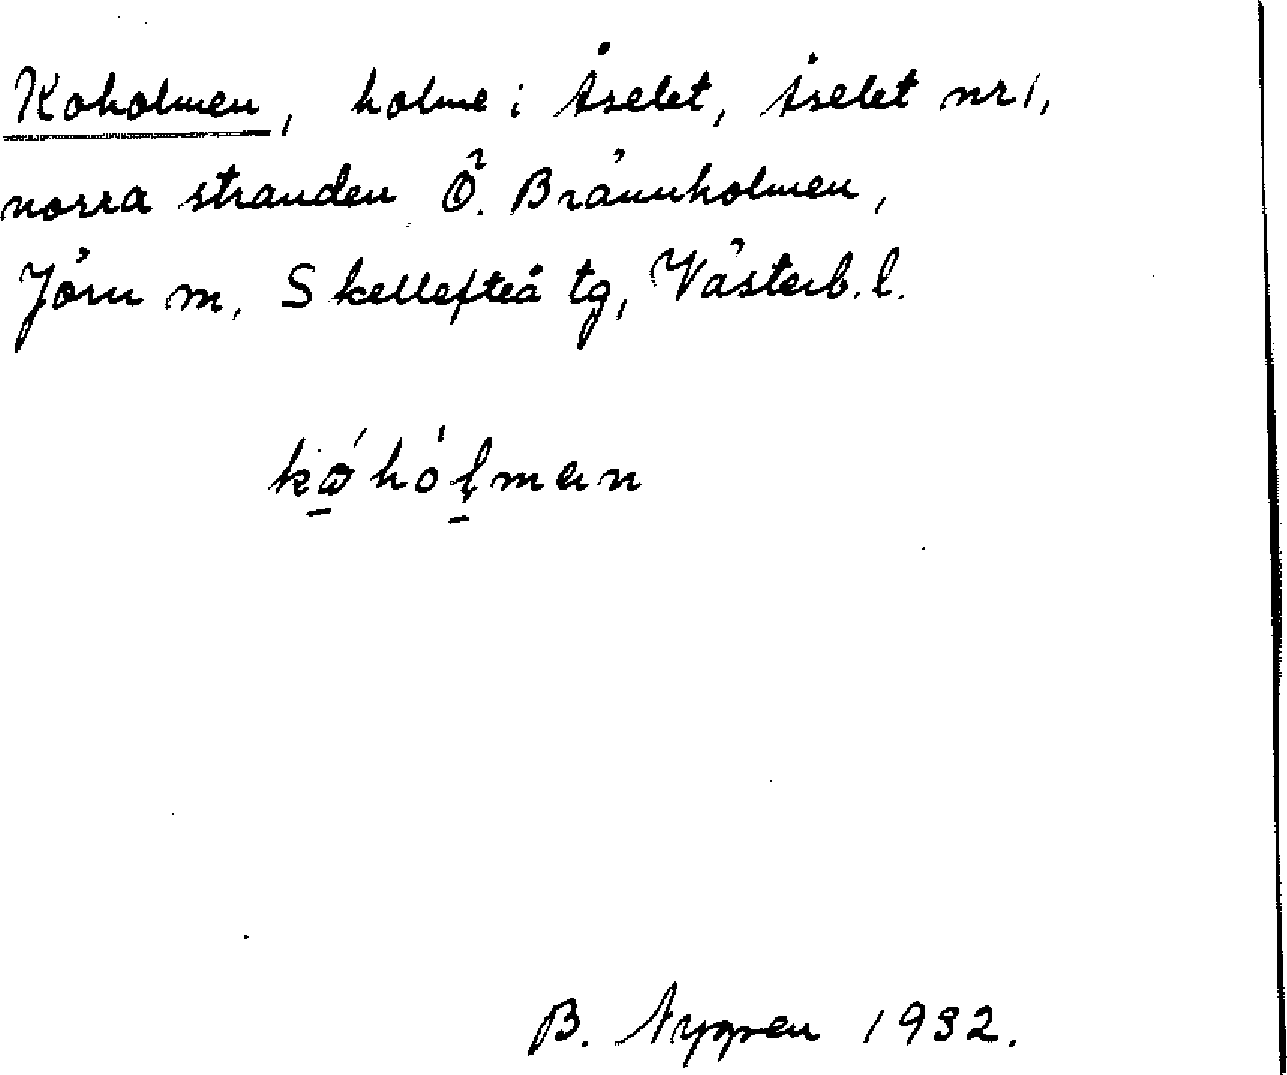 Koholmen, holme i Åselet, Åselet nr 1,
norra stranden Ö. Brännholmen,
Jörn m, Skellefteå tg, Västerb. l.
B. Nygren 1932.